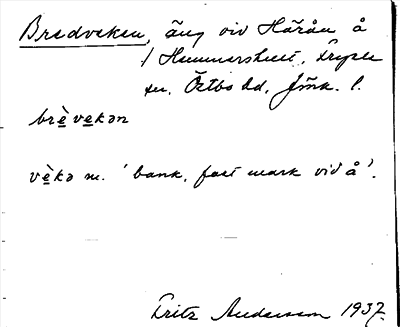 Bredveken, äng vid Härån å
/ Hammarshult, Fryele
sn, Östbo hd, Jönk. l.
brè̱ ve̱kən
vè̱kə m. 'bank, fast mark vid å'.
Fritz Andersson 1937.